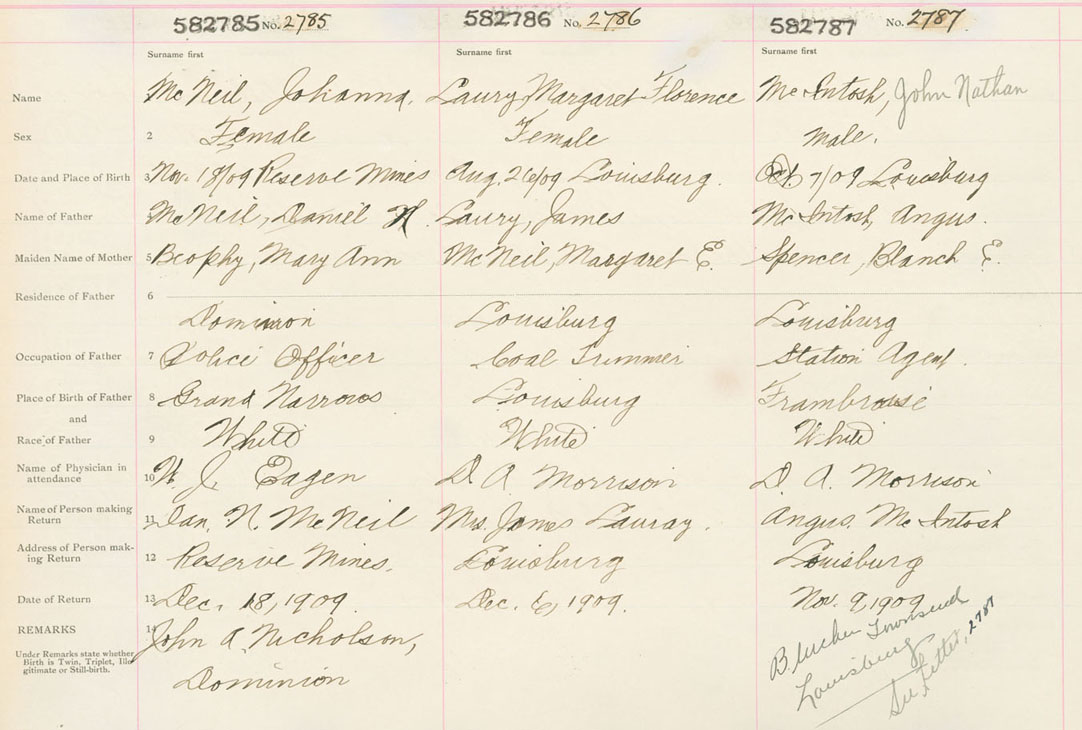 582785 No. 2785 582786 No. 2786 582787 No. 2787
Surname first Surname first Surname first
Name Mc Neil, Johanna. Laury, Margaret Florence McIntosh, John Nathan
Sex 2 Female Female Male.
Date and Place of Birth 3 Nov. 18/09 Reserve Mines Aug. 26/09 Louisburg. Oct. 7/09 Louisburg
Name of Father McNeil, Daniel N. Laury, James McIntosh, Angus.
Maiden Name of Mother 5 Beophy, Mary Ann McNeil, Margaret E. Spencer, Blanch E.
Residence of Father 6
Dominion Louisburg Louisburg
Occupation of Father 7 Police Officer Coal Trimmer Station Agent.
Place of Birth of Father 8 Grand Narrows Louisburg Frambroise
and
Race of Father 9 White White White
Name of Physician in
attendance 10 W. J. Eagen D. A. Morrison D. A. Morrison
Name of Person making
Return 11 Dan. N. McNeil Mrs. James Lauray. Angus. McIntosh
Address of Person mak-
ing Return 12 Reserve Mines. Louisburg Louisburg
Date of Return 13 Dec. 18, 1909. Dec. 6, 1909. Nov. 9, 1909
REMARKS 14 John A. Nicholson,
Under Remarks state whether
Birth is Twin, Triplet, Ille
gitimate or Still-birth.
Dominion
Townsend
Louisburg
See Letter, 2787